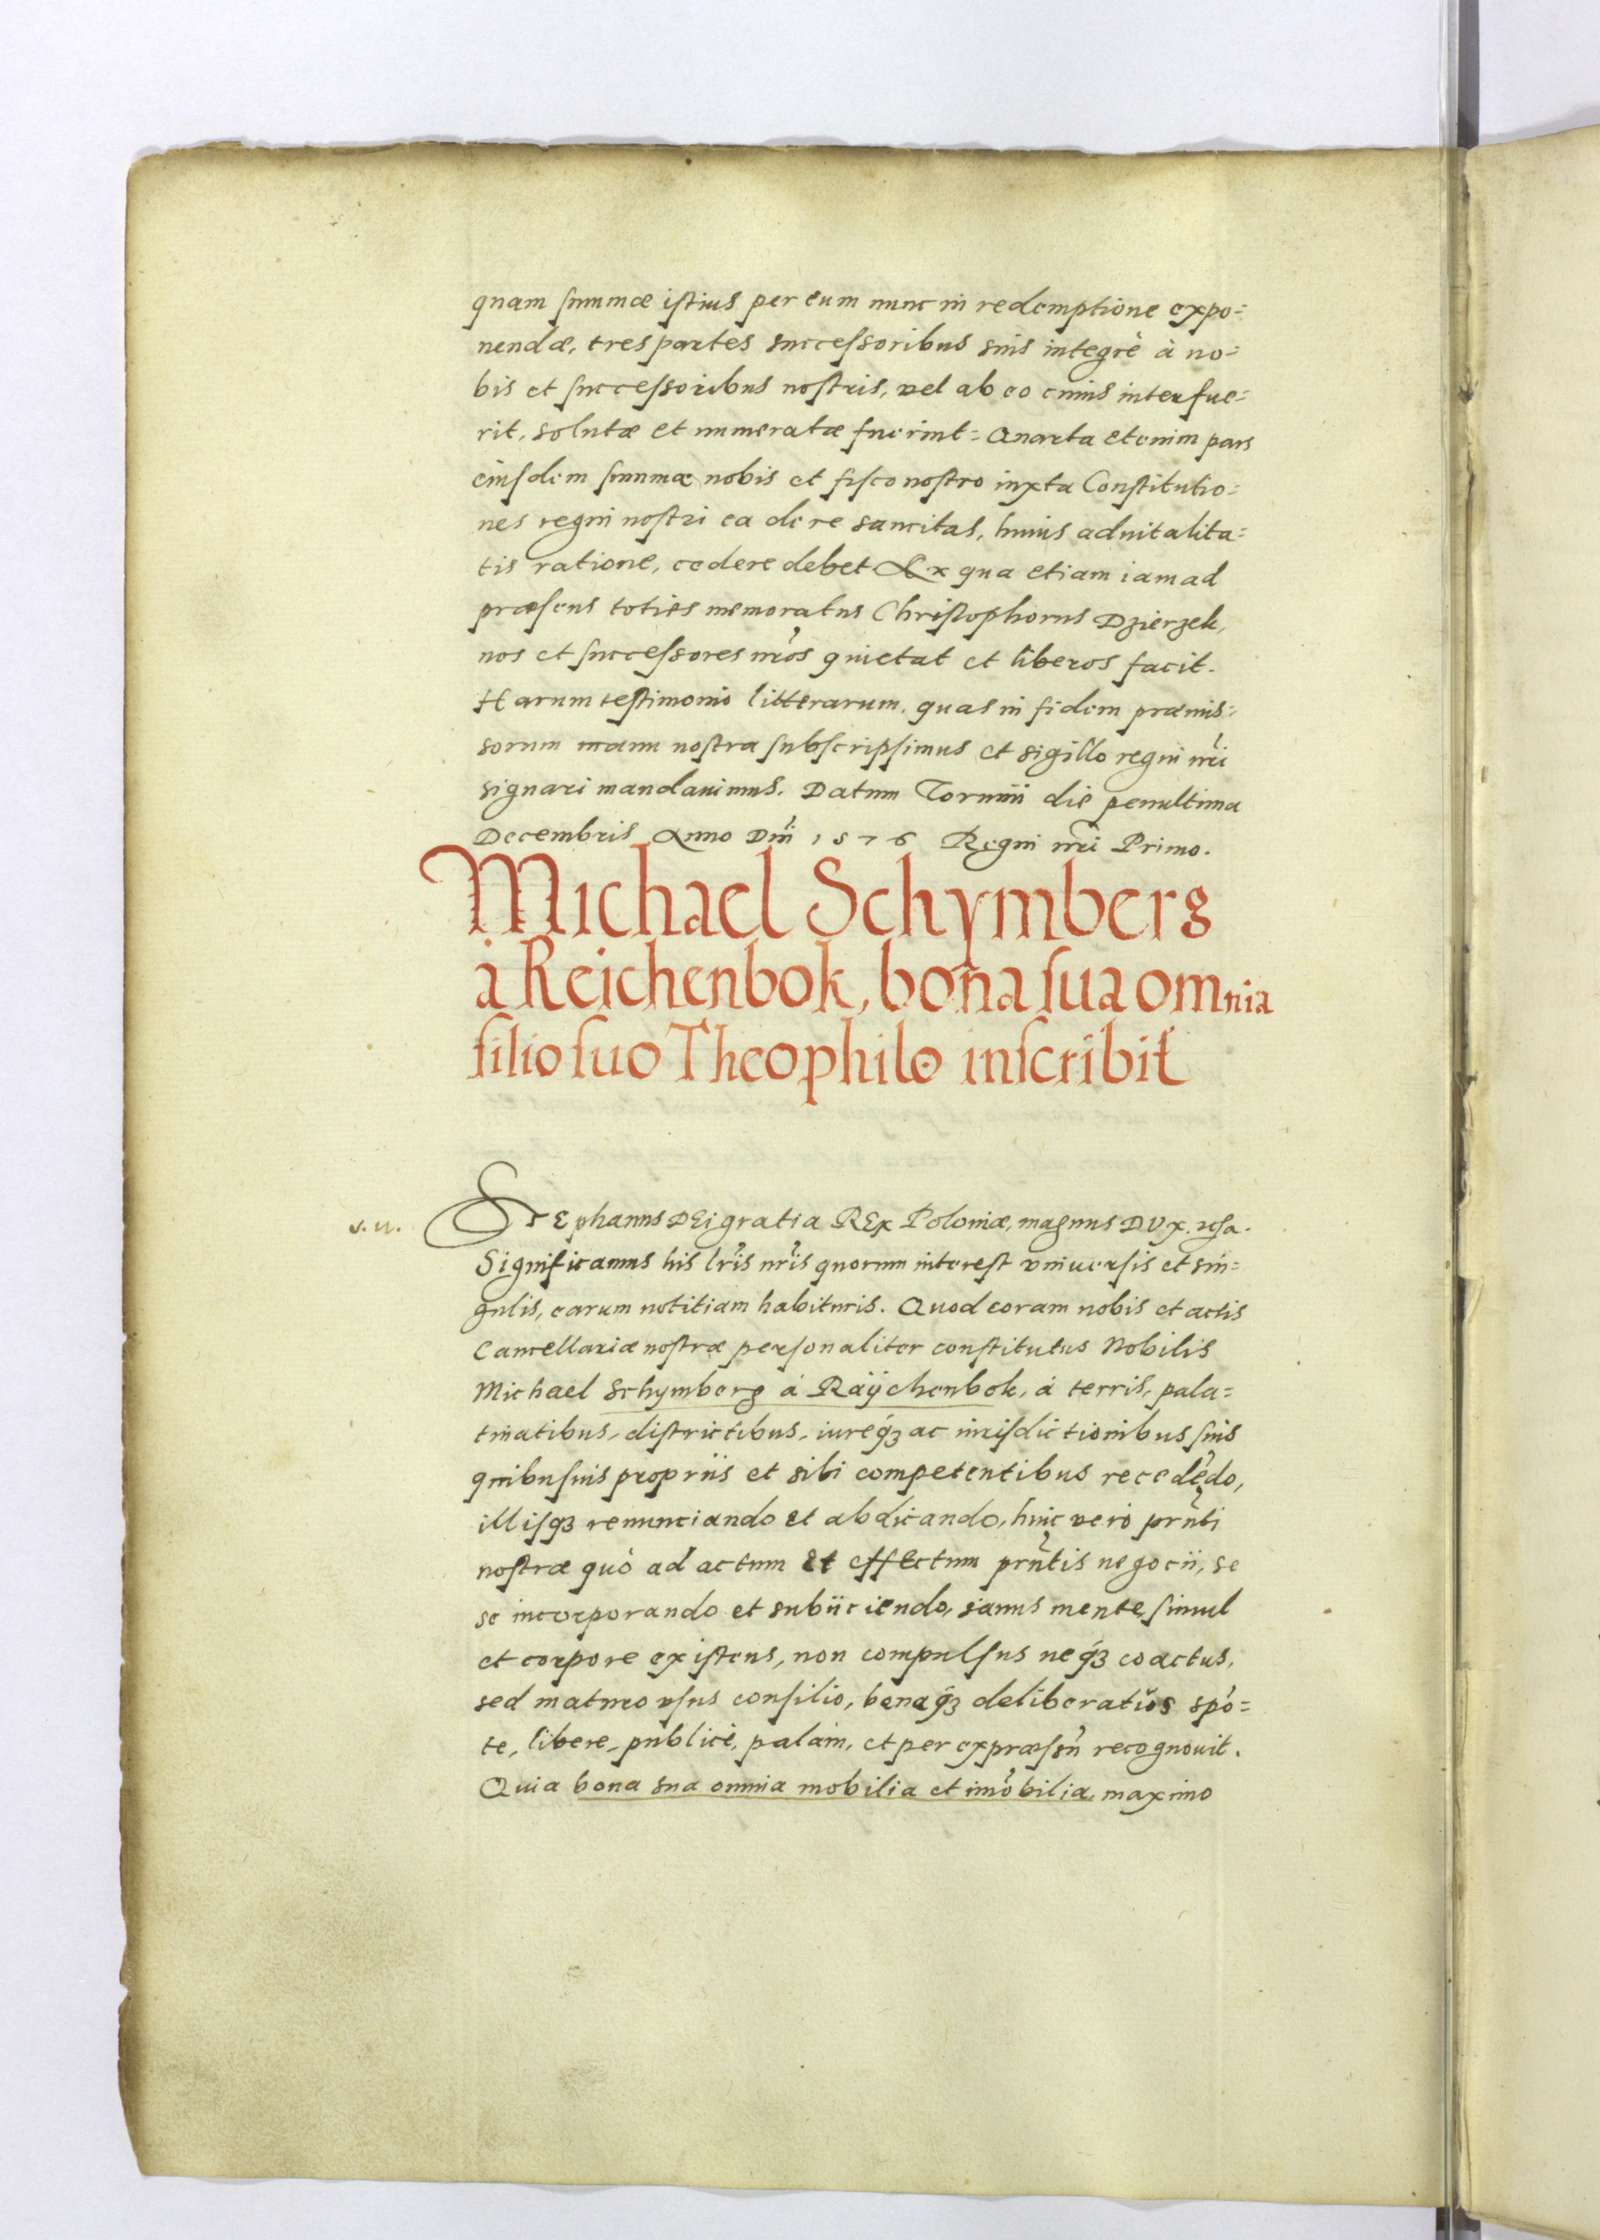 quam summæ istius per eum nunc in redemptione expo=
nendæ, tres partes successoribus suis integrè à no=
bis et successoribus nostris, vel ab eo cuius interfue=
rit, solutæ et numeratæ fuerint= Quarta etenim pars
eiusdem summæ nobis et fisco nostro iuxta Constitutio=
nes regni nostri ea de re sancitas, huius aduitalita=
tis ratione, cedere debet Ex qua etiam iam ad
præsens toties memoratus Christophorus Dzierzek,
nos et successores nr̃os quietat et liberos facit.
Harum testimonio litterarum, quas in fidem præmis=
sorum manu nostra subscripsimus et sigillo regni nr̃i
signari mandauimus. Datum Torunii die penultima
Decembris Anno Dni̇̃ 1576 Regni nr̃i Primo.
Michael Schymberg
à Reichenbok, bona sua omnia
filio suo Theophilo inscribit
s. u. STEphanus DEi gratia REx Poloniæ, magnus DVx.
Significamus his lr̃is nr̃is quorum interest vniuersis et sin=
gulis, earum notitiam habituris. Quod coram nobis et actis
Cancellariæ nostræ personaliter constitutus Nobilis
Michael Schymberg à Raÿchenbok, à terris, pala=
tinatibus, districtibus, iureq́ȝ ac iurisdictionibus suis
quibusuis propriis et sibi competentibus recedẽdo,
illisqȝ renunciando et abdicando, huic verò prñti
nostræ quò ad actum Et effEctum prñtis negocii, se
se incorporando et subiiciendo, sanus mente simul
et corpore existens, non compulsus neq́ȝ coactus,
sed maturo vsus consilio, beneq́ȝ deliberatus spõ=
te, libere, publicè, palàm, et per expræssũ recognouit.
Quia bona sua omnia mobilia et im̃obilia, maximo